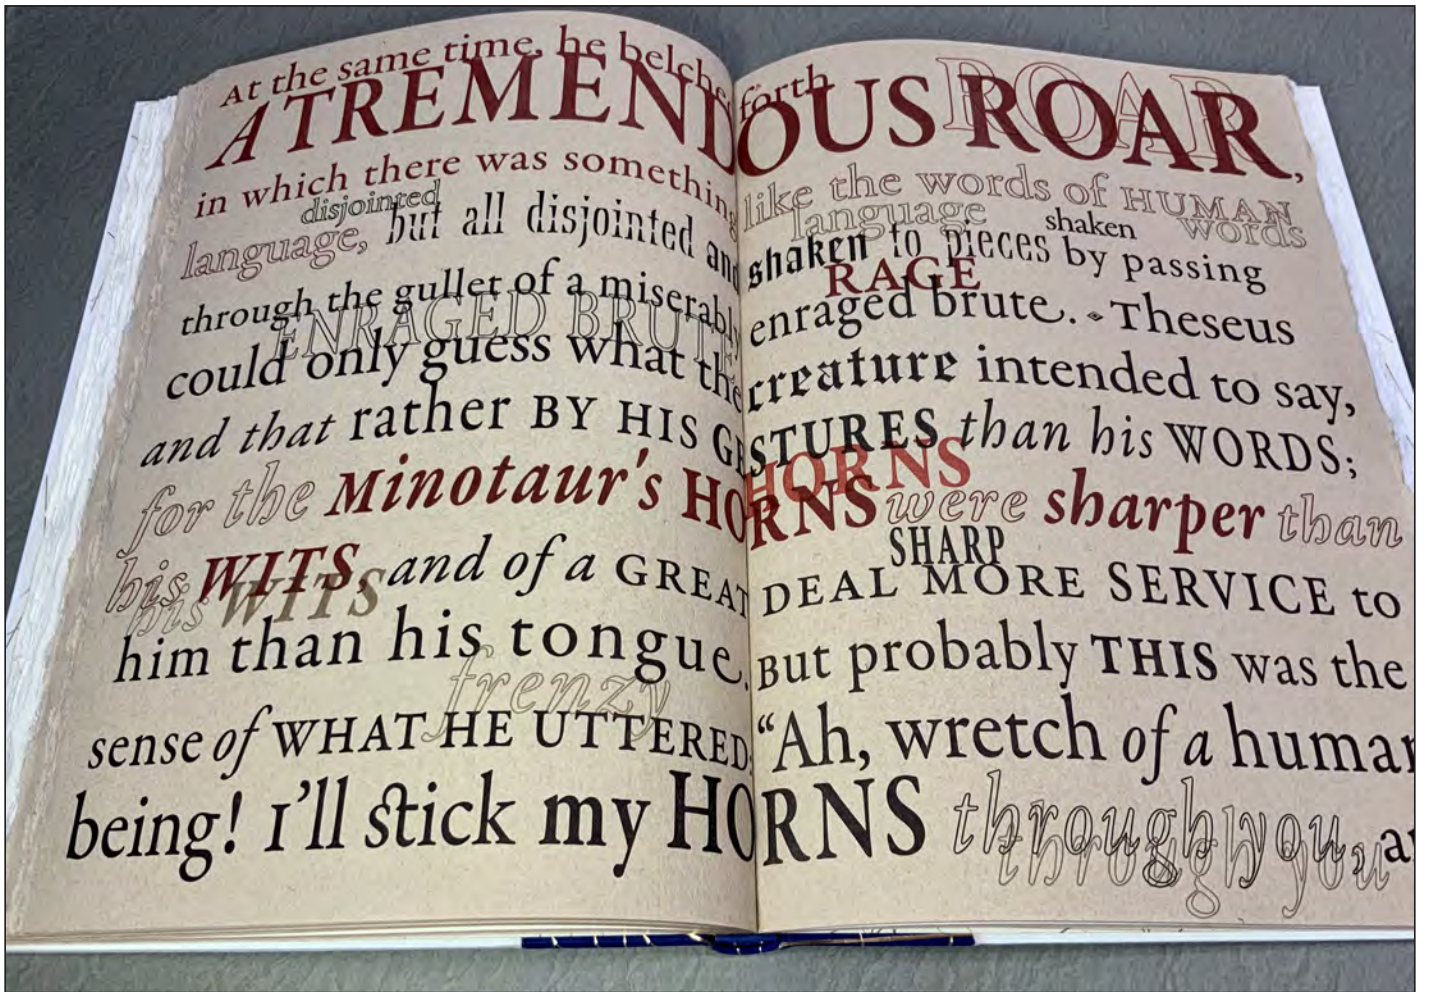 At the same time, he belched forth
A TREMENDOUS ROAR,
ROAR
in which there was something like the words of HUMAN
disjointed language words
language, but all disjointed and shaken to pieces by passing
shaken
RAGE
through the gullet of a miserably enraged brute. Theseus
ENRAGED BRUTE
could only guess what the creature intended to say,
and that rather BY HIS GESTURES than his WORDS;
HORNS
for the Minotaur's HORNS were sharper than
SHARP
his WITS, and of a GREAT DEAL MORE SERVICE to
his WITS
him than his tongue. But probably THIS was the
frenzy
sense of WHAT HE UTTERED: "Ah, wretch of a human
being! I'll stick my HORNS through you, a
through you